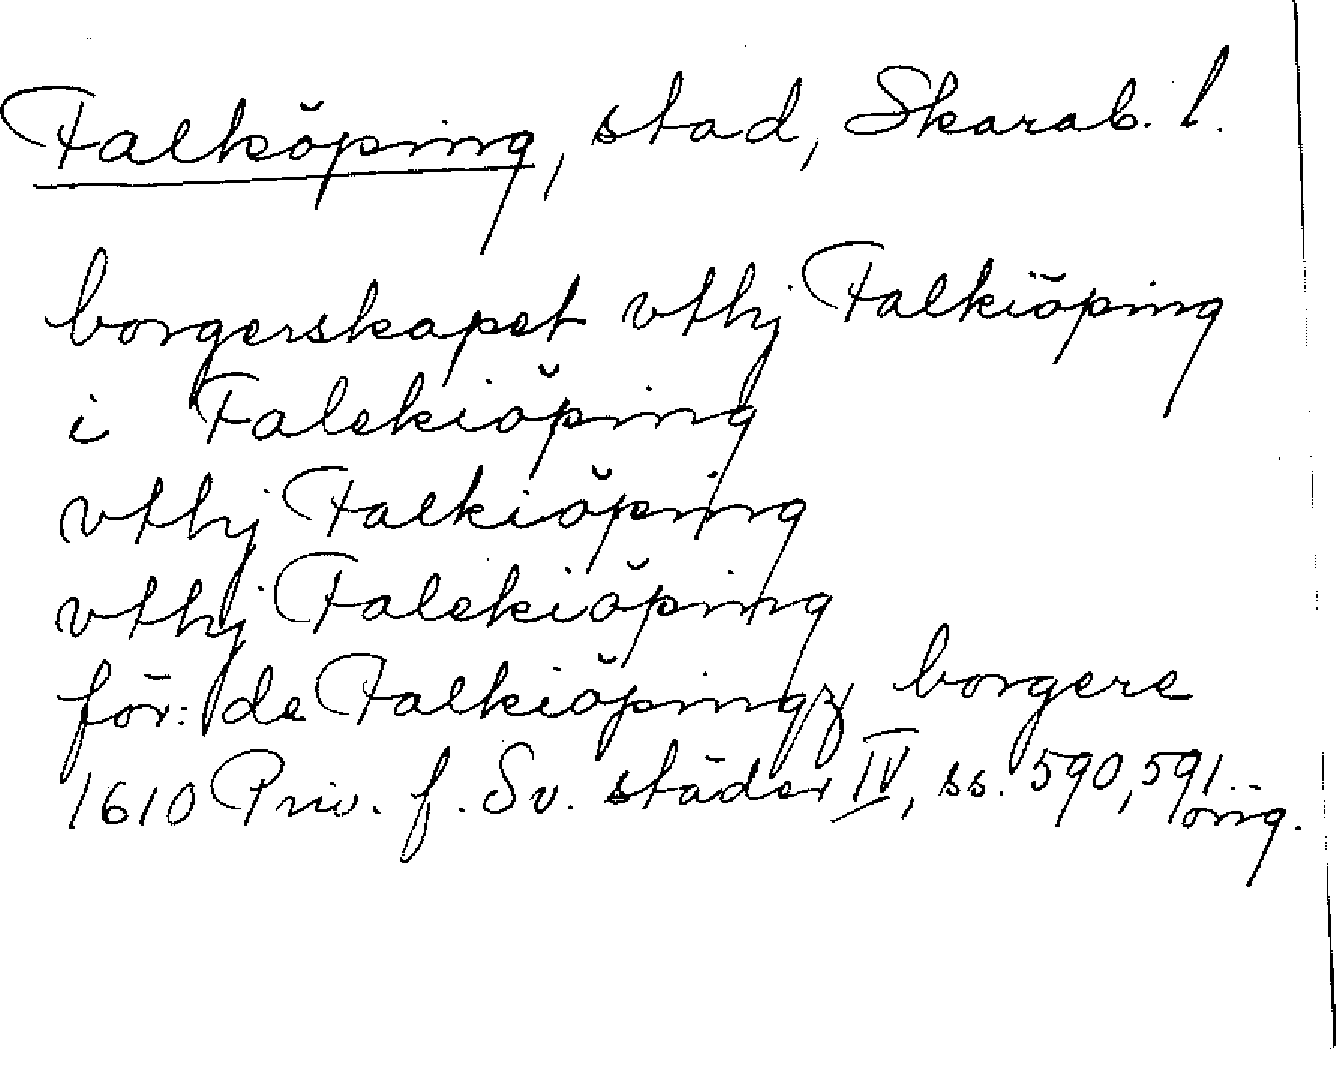 Falköping, stad, Skarab. l.
borgerskapet vthj Falkiöping
i Falekiöping
vthj Falkiöping
vthj Falekiöping
för: de Falkiöpingz borgere
1610 Priv. f. Sv. städer IV, ss. 590, 591.
orig.